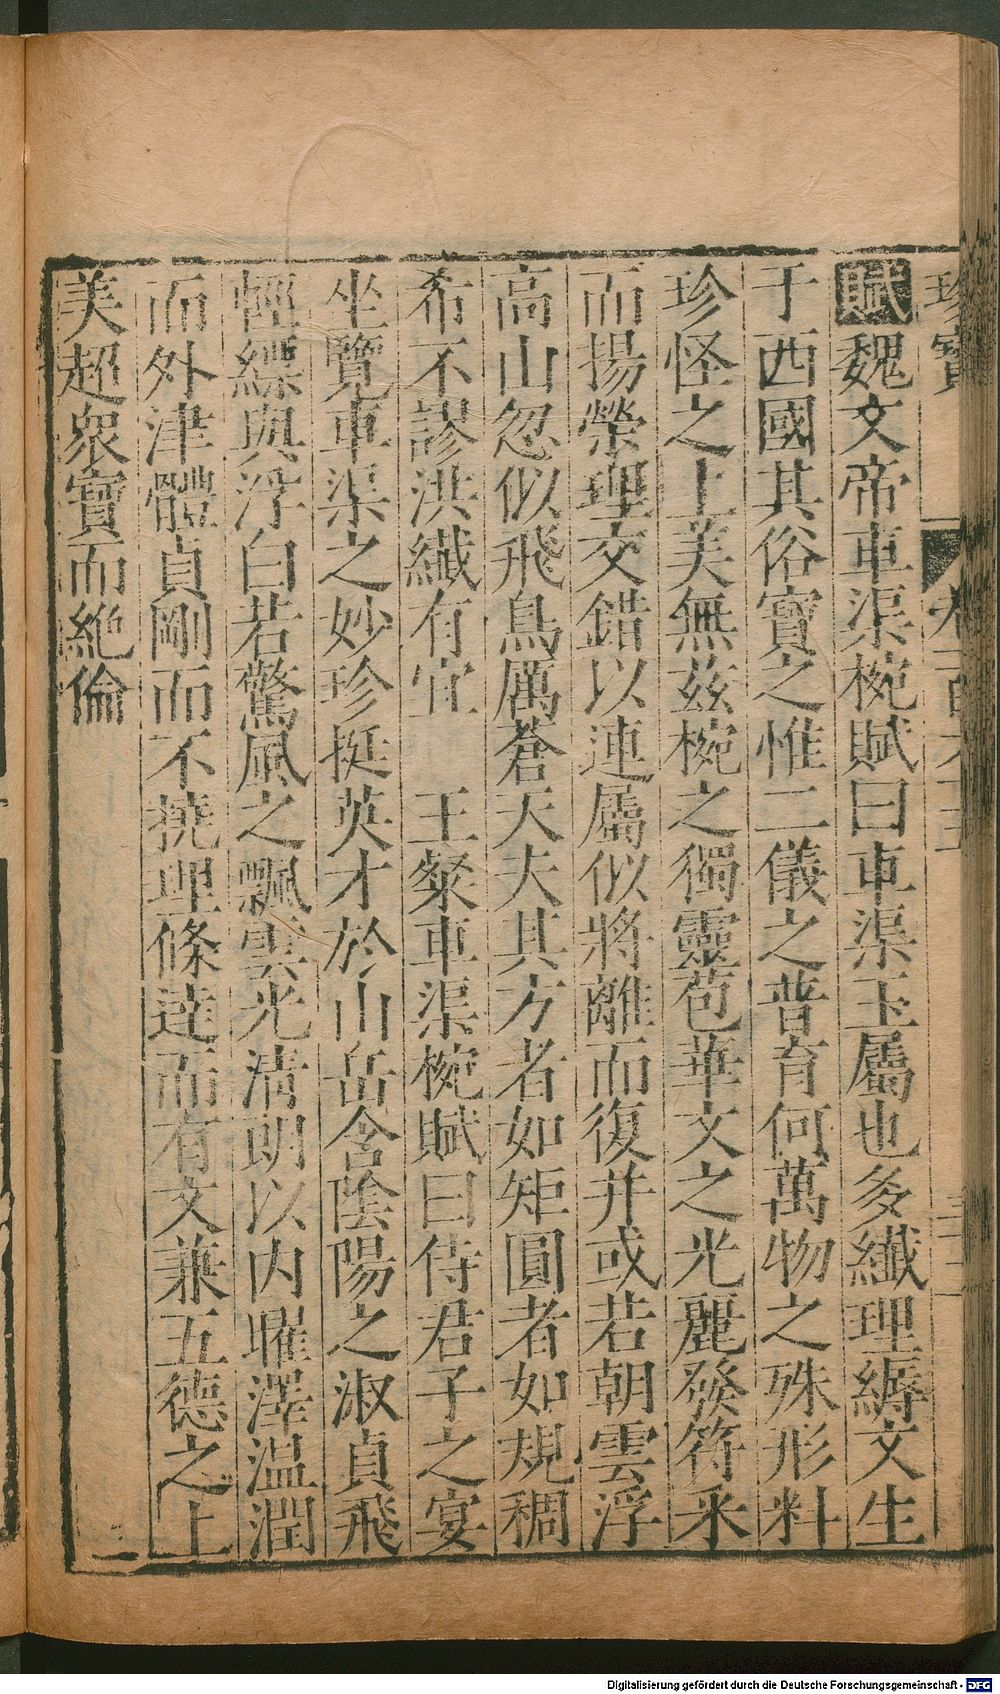 珍寶 卷
賦魏文帝車渠椀賦曰車渠玉屬也多纖理縟文生
于西國其俗寶之惟二儀之普育何萬物之殊形料
珍怪之上美無茲椀之獨靈苞華文之光麗發符采
而揚榮理交錯以連屬似將離而復并或若朝雲浮
高山忽似飛鳥厲蒼天夫其方者如矩圓者如規稠
希不謬洪纖有宜 王粲車渠椀賦曰侍君子之宴
坐覽車渠之妙珍挺英才於山岳含陰陽之淑貞飛
輕縹與浮白若驚風之飄雲光清朗以內曜澤溫潤
而外津體貞剛而不撓理條達而有文兼五德之上
美超衆寶而絶倫
Digitalisierung gefördert durch die Deutsche Forschungsgemeinschaft - DFG